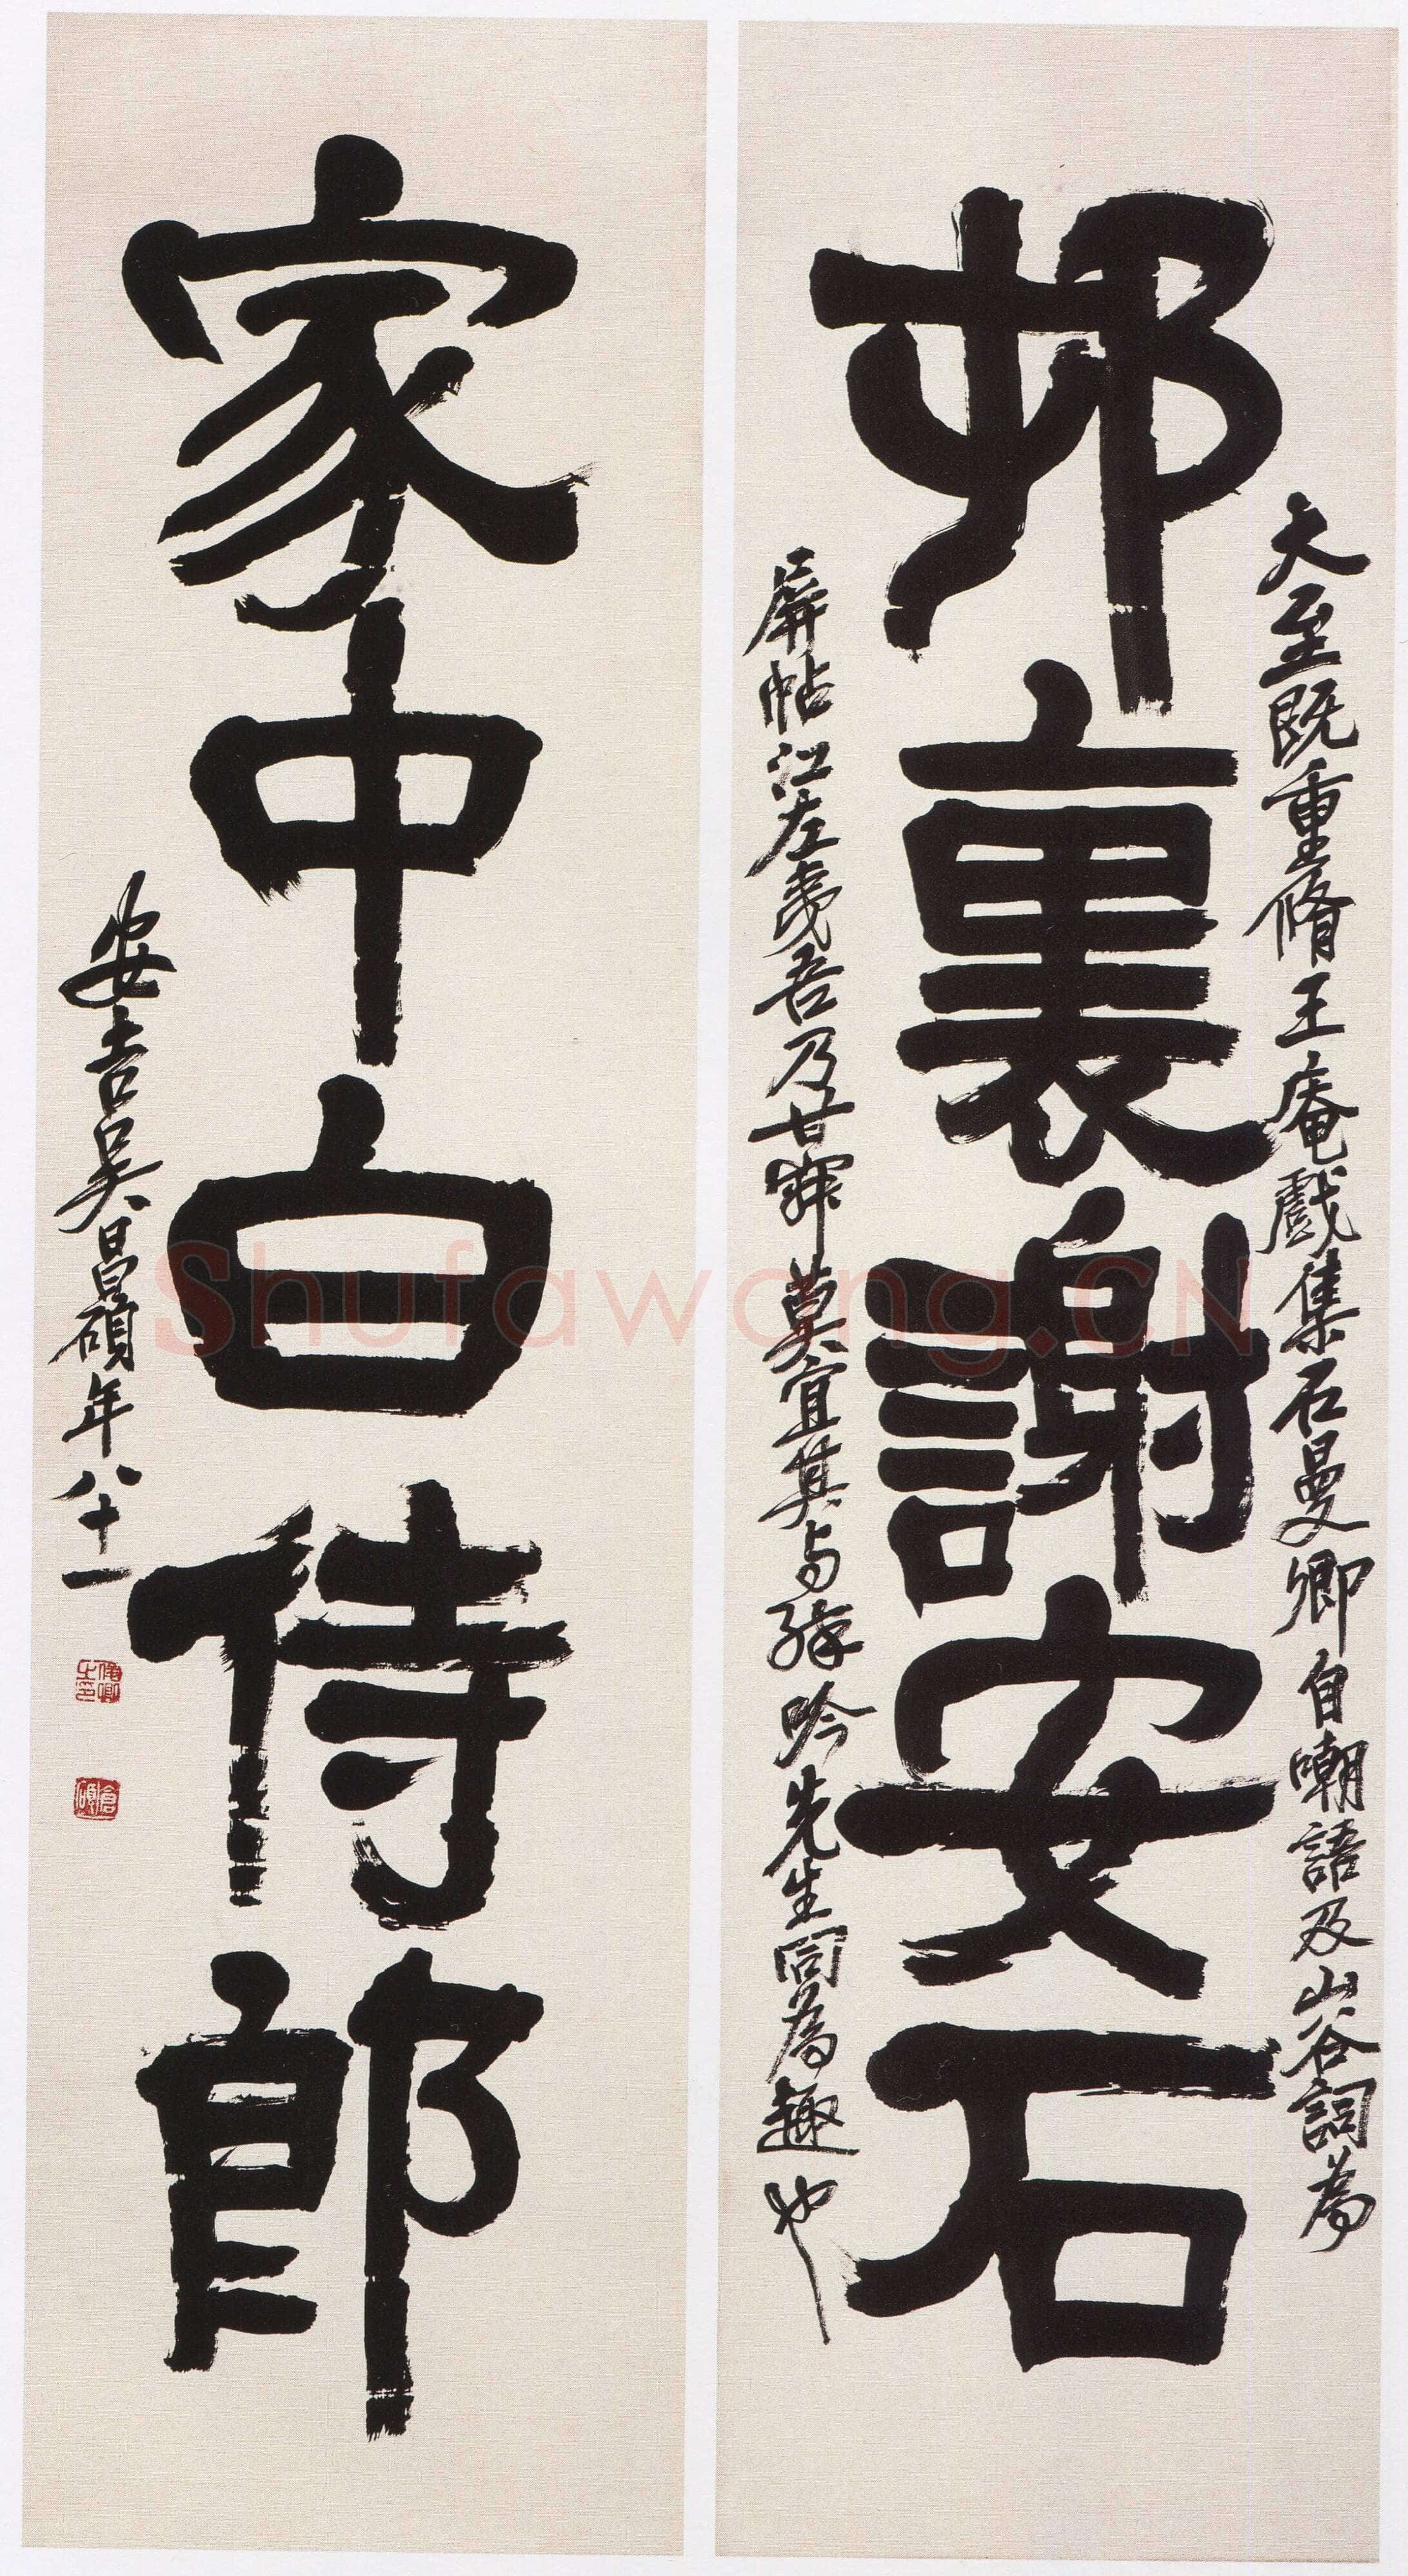 邨裏謝安石
大至既重脩王庵戲集石曼卿自嘲語及山谷詞為
屏帖江左夷吾乃甘寐莫宜其与缘吟先生同為趣也
家中白侍郎
安吉吴昌碩年八十一
Shufawang.CN